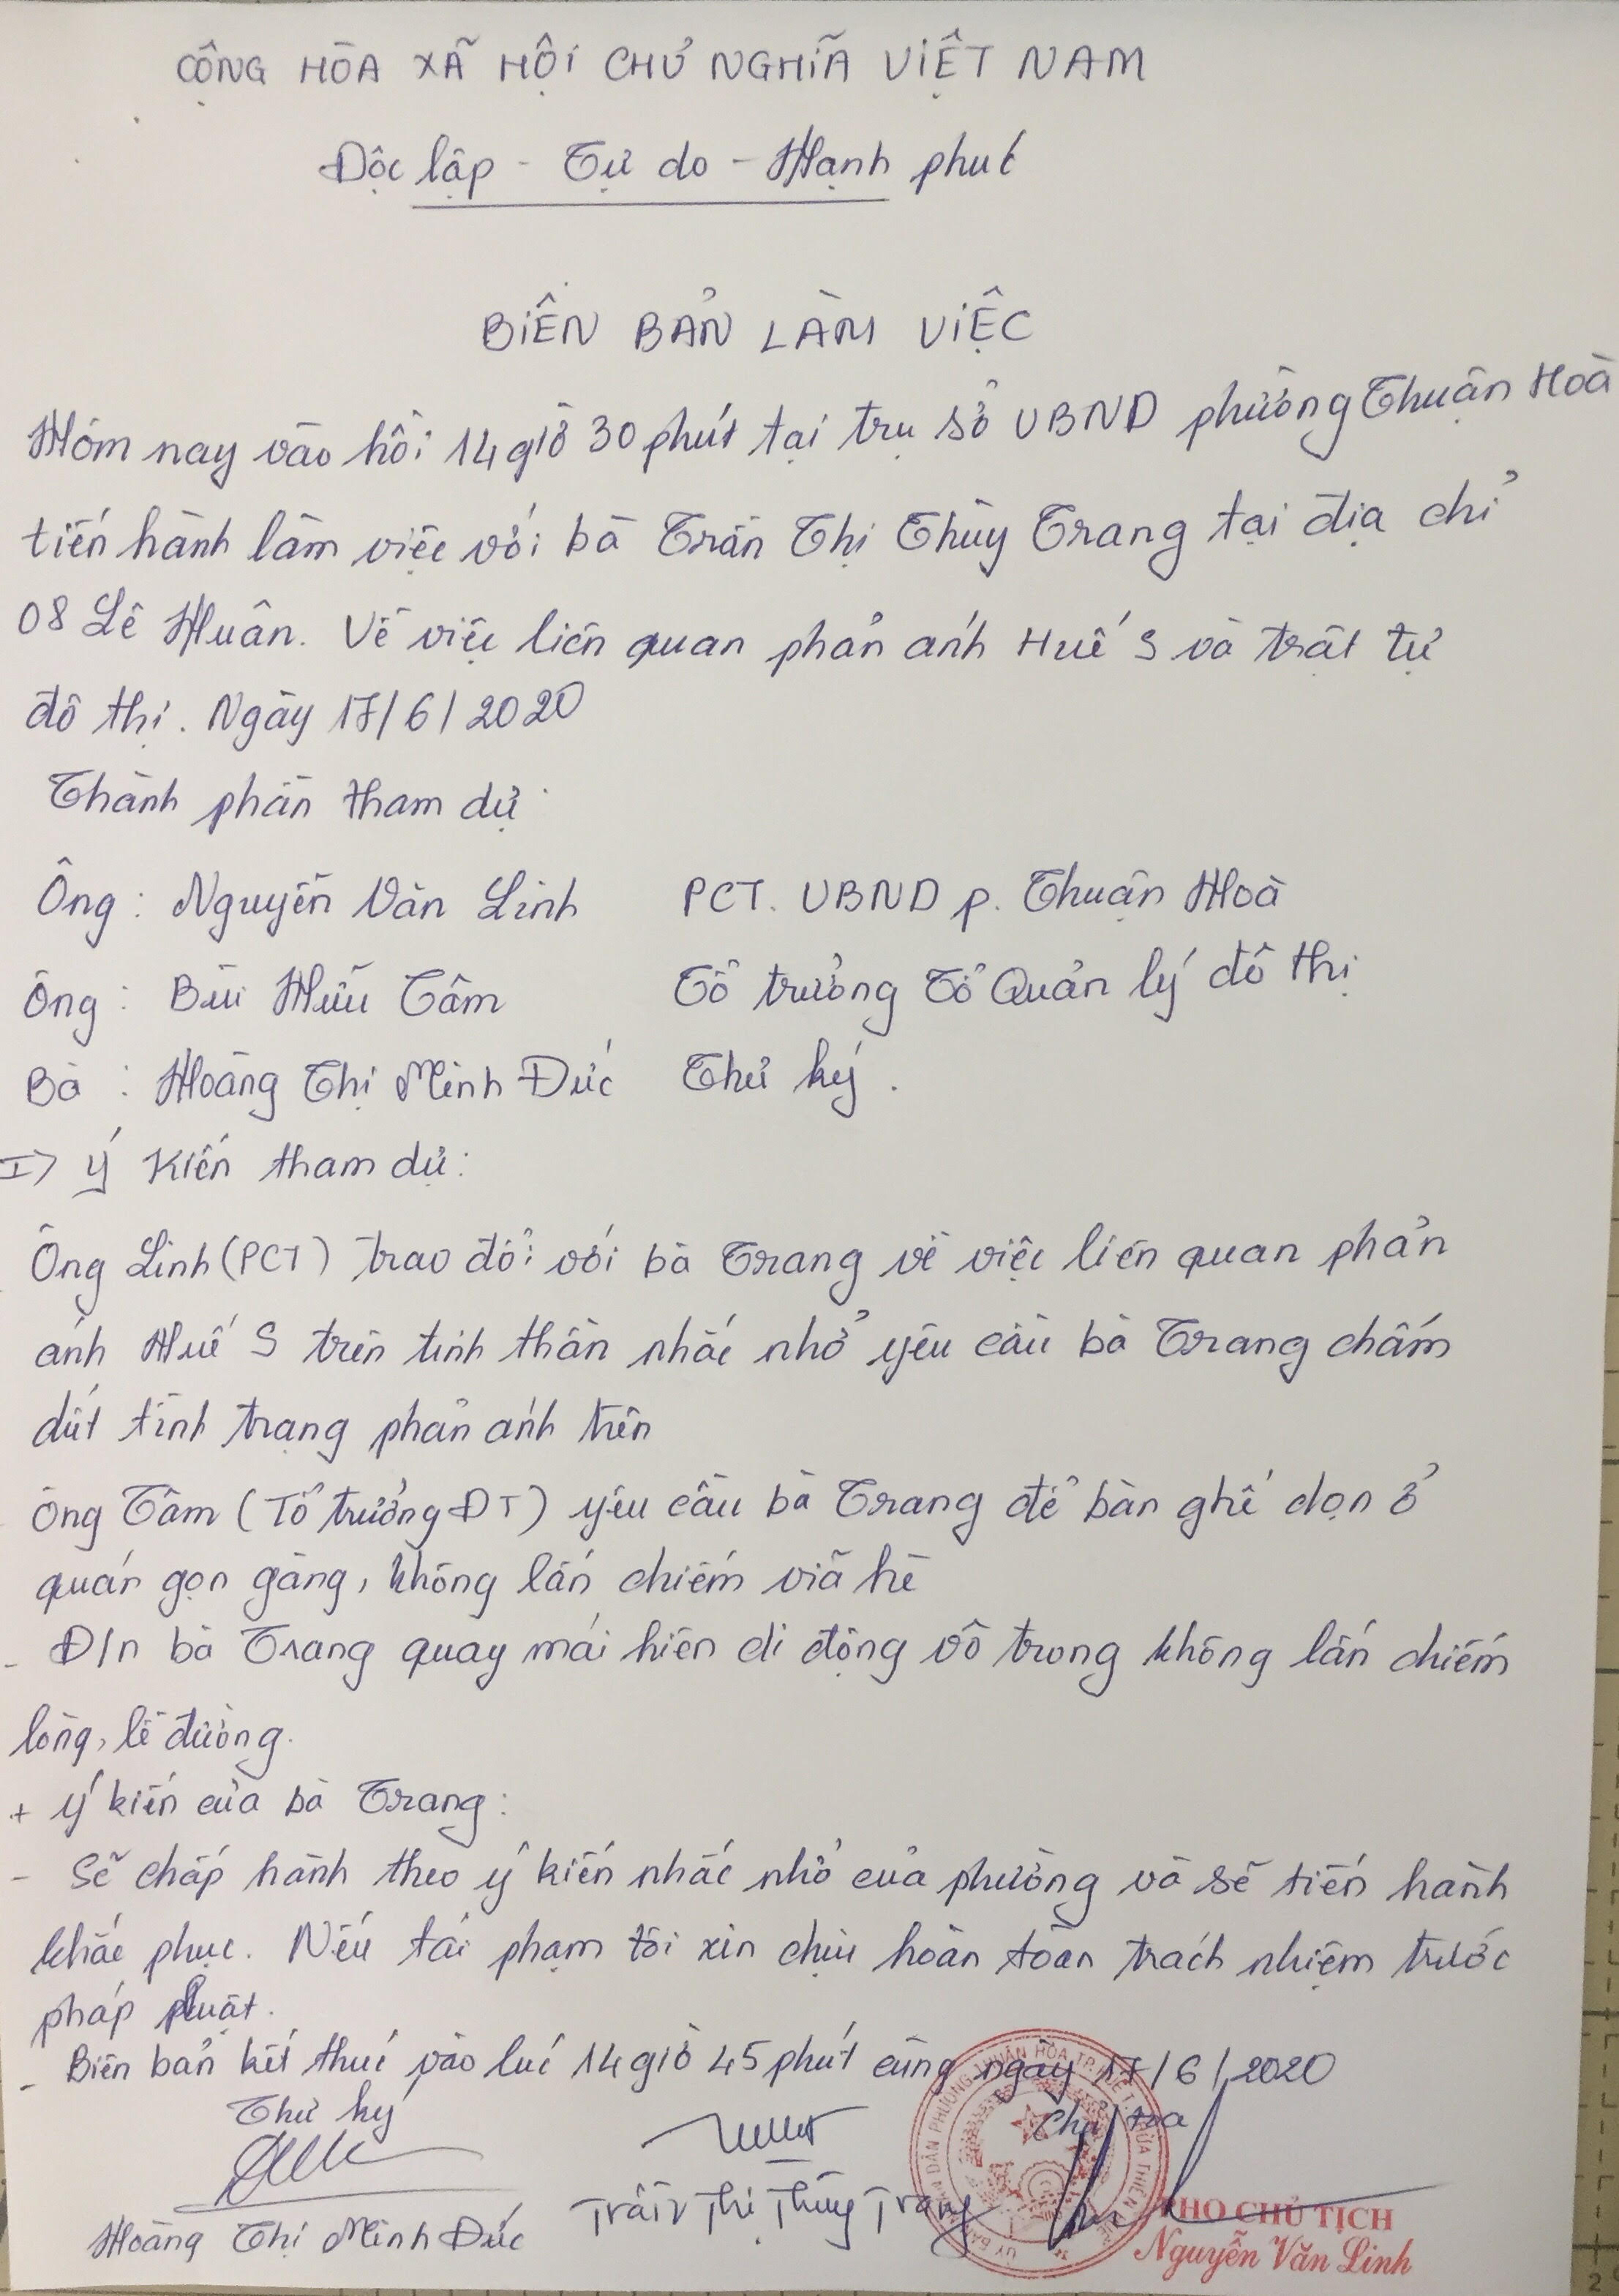 CỘNG HÒA XÃ HỘI CHỦ NGHĨA VIỆT NAM
Độc lập - Tự do - Hạnh phúc
BIÊN BẢN LÀM VIỆC
Hôm nay vào hồi 14 giờ 30 phút tại trụ sở UBND phường Thuận Hoà
tiến hành làm việc với bà Trần Thị Thùy Trang tại địa chỉ
08 Lê Huân. Về việc liên quan phản ánh Huế S và trật tự
đô thị. Ngày 17/6/2020
Thành phần tham dự:
Ông: Nguyễn Văn Linh PCT. UBND p. Thuận Hoà
Ông: Bùi Hữu Tâm Tổ trưởng Tổ Quản lý đô thị
Bà: Hoàng Thị Minh Đức Thư ký.
I> Ý kiến tham dự:
Ông Linh (PCT) trao đổi với bà Trang về việc liên quan phản
ánh Huế S trên tinh thần nhắc nhở yêu cầu bà Trang chấm
dứt tình trạng phản ánh trên
Ông Tâm (Tổ trưởng ĐT) yêu cầu bà Trang để bàn ghế dọn ở
quán gọn gàng, không lấn chiếm viã hè
- Đ/n bà Trang quay mái hiên di động vô trong không lấn chiếm
lòng, lề đường.
+ Ý kiến của bà Trang:
- Sẽ chấp hành theo ý kiến nhắc nhở của phường và sẽ tiến hành
khắc phục. Nếu tái phạm tôi xin chịu hoàn toàn trách nhiệm trước
pháp luật.
- Biên bản kết thúc vào lúc 14 giờ 45 phút cùng ngày 17/6/2020
Thư ký Chủ tọa
Hoàng Thị Minh Đức Trần Thị Thùy Trang PHÓ CHỦ TỊCH
Nguyễn Văn Linh